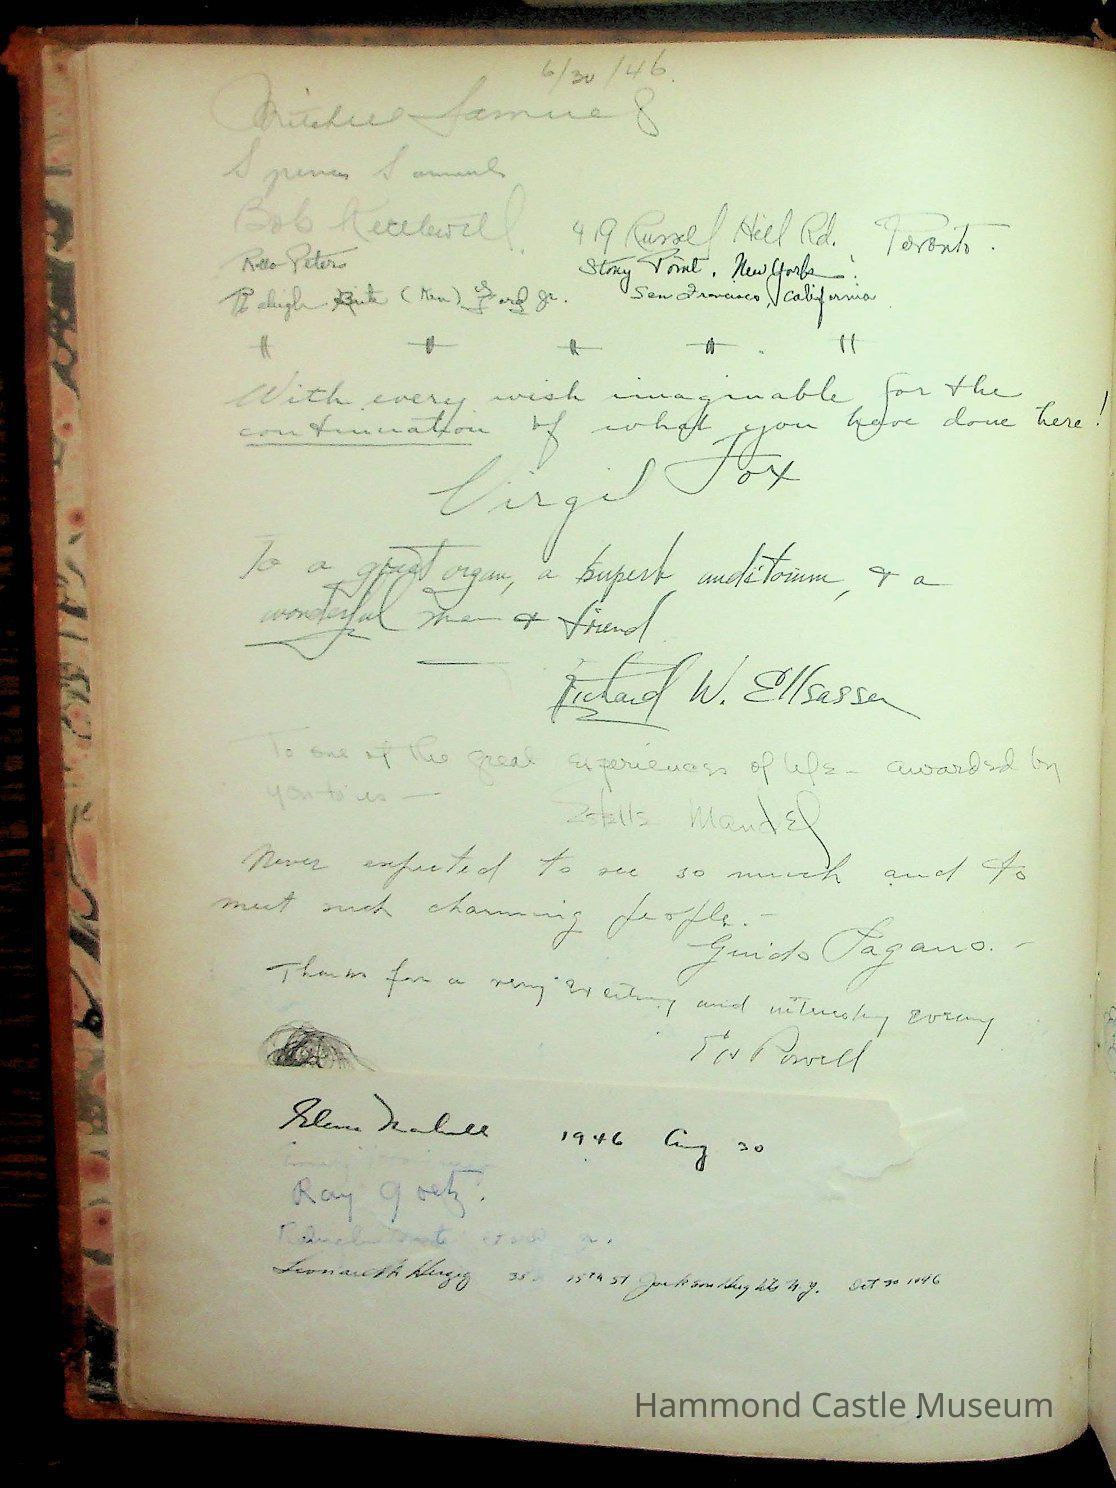 6/30/46.
Mitchell Samuels
Samuels
Bob 419 Russel Hill Rd. Toronto.
Rollo Peters Stony Point, New York.
Raleigh (Ken) Ford Jr. San Francisco, California
" " " " "
With every wish imaginable for the
continuation of what you have done here!
Virgil Fox
To a great organ, a superb auditorium, & a
wonderful man & friend
Richard W. Ellsasser
To one of the great experiences of life - awarded by
you to us -
Estelle Mandel
Never expected to see so much and to
meet such charming people. -
Guido Pagano. -
Thanks for a very exciting and interesting evening
Powell
1946 Aug 30
Ray Goetz.
Jr.
Leonard 75th St Jackson Heights N.Y. Oct 30 1946
Hammond Castle Museum